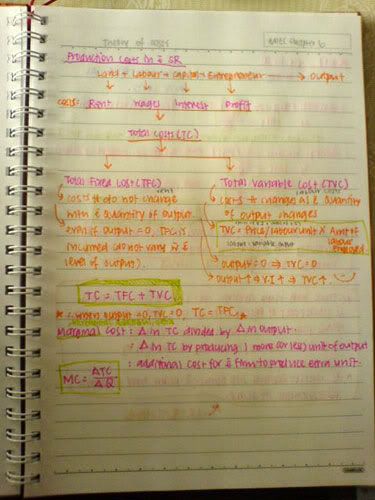 Theory of Costs
Chapter 6
Production Costs in SR
Land + Labour + Capital + Entrepreneur → Output
Costs: Rent Wages Interest Profit
Total Costs (TC)
Total Fixed Cost (TFC)
costs tt do not change
with quantity of output
even if output = 0, TFC is
incurred (do not vary
level of output).
Total Variable Cost (TVC)
labour costs
costs tt change as quantity
of output changes
TVC = Price/labour unit × Amt of
labour
employed
output = 0 ⇒ TVC = 0
output ↑ ⇒ V.I ↑ ⇒ TVC ↑.
TC = TFC + TVC
* ∴ when output = 0, TVC = 0, TC = TFC *
Marginal Cost: Δ in TC divided by Δ in output.
: Δ in TC by producing 1 more (or less) unit of output
: additional cost for firm to produce extra unit.
MC = ΔTC
ΔQ